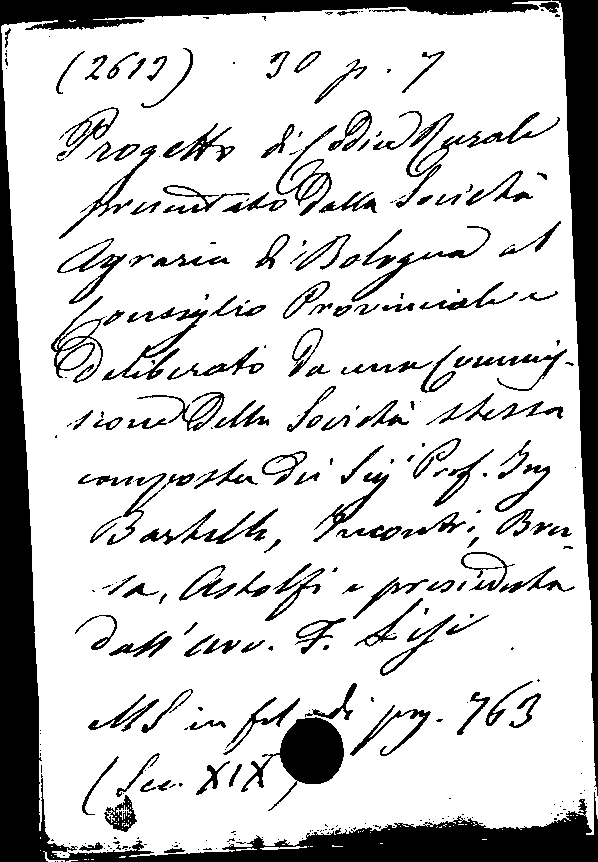 (2613) 30 p. 7
Progetto di Codice Rurale
presentato dalla Società
Agraria di Bologna al
Consiglio Provinciale e
deliberato da una Commis-
sione della Società stessa
composta dei Sigi Prof. Ing
Incontri,
sa, Astolfi e presieduta
dall'avv. F. Lisi
MS in fol di pag. 763
(Sec. XIX)